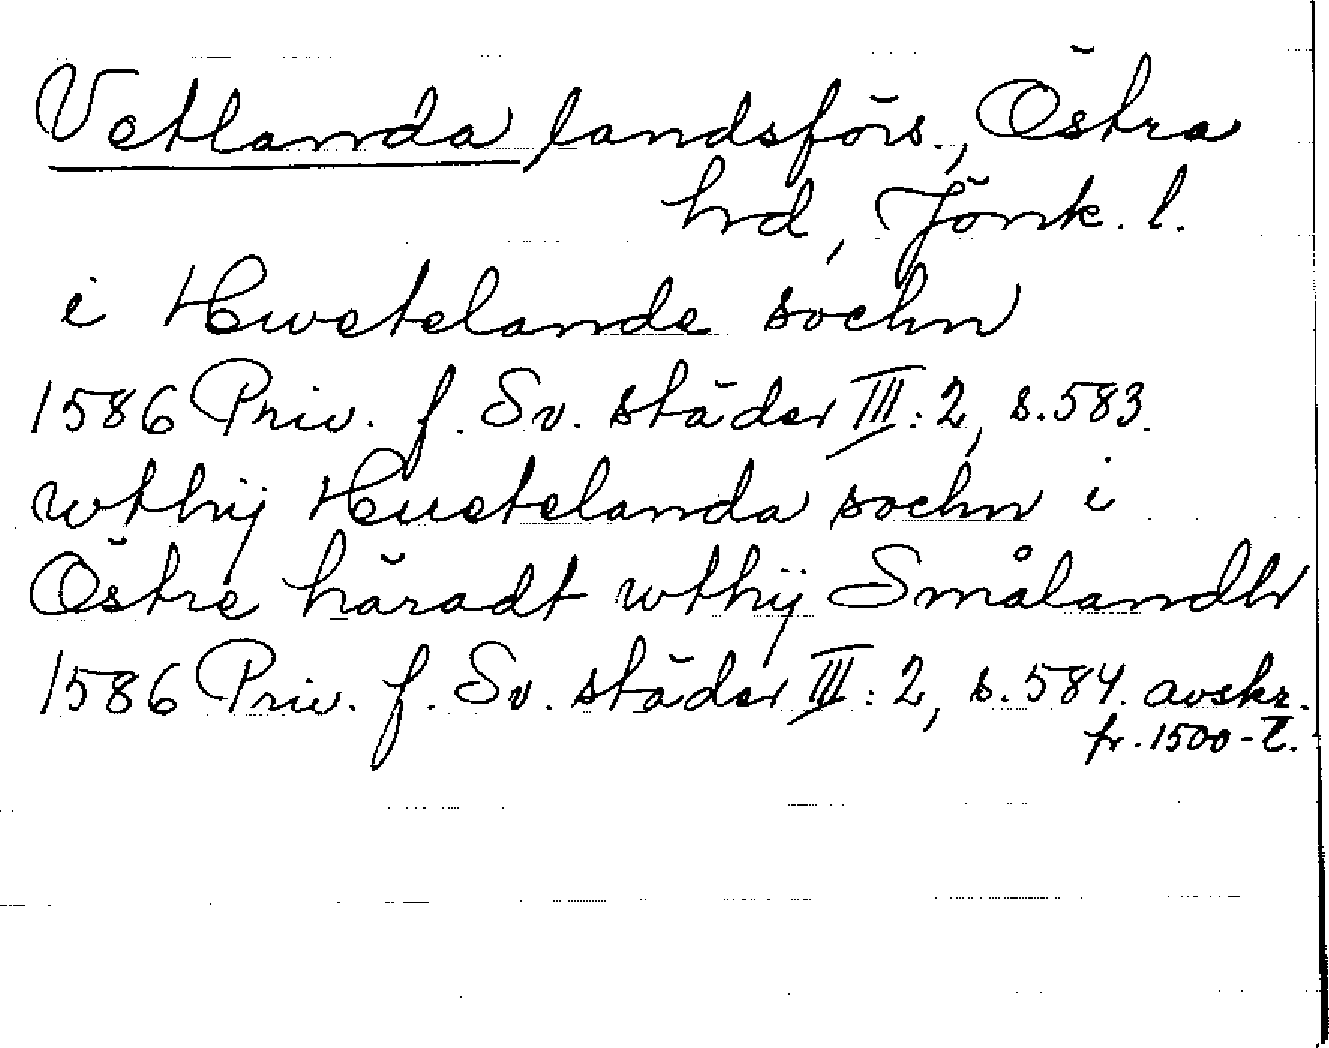 Vetlanda landsförs., Östra
hrd, Jönk. l.
i Hwetelande sochn
1586 Priv. f. Sv. städer III:2, s. 583.
wthij Huetelanda sochn i
Östre häradt wthij Smålandh
1586 Priv. f. Sv. städer III:2, s. 584. avskr.
fr. 1500-t.